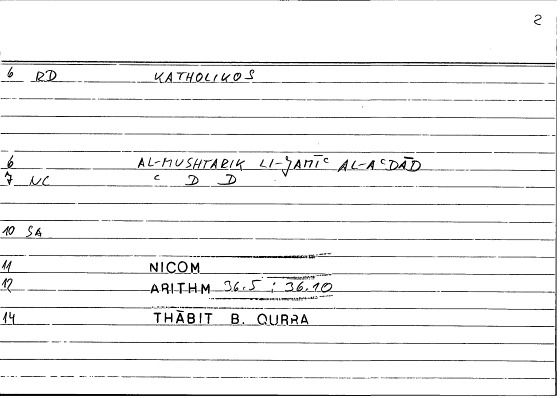 2
6 RD KATHOLIKOS
6 AL-MUSHTARIK LI-JAMĪᶜ AL-AᶜDĀD
7 NC ᶜ D D
10 SA
11 NICOM
12 ARITHM 36.5 ; 36.10
14 THĀBIT B. QURRA